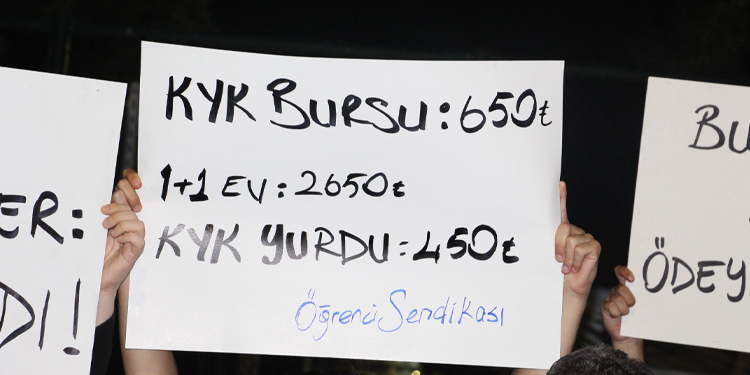 ER:
Dİ!
KYK BURSU: 650₺
1+1 EV: 2650₺
KYK YURDU: 450₺
Öğrenci Sendikası
BU
ÖDEY